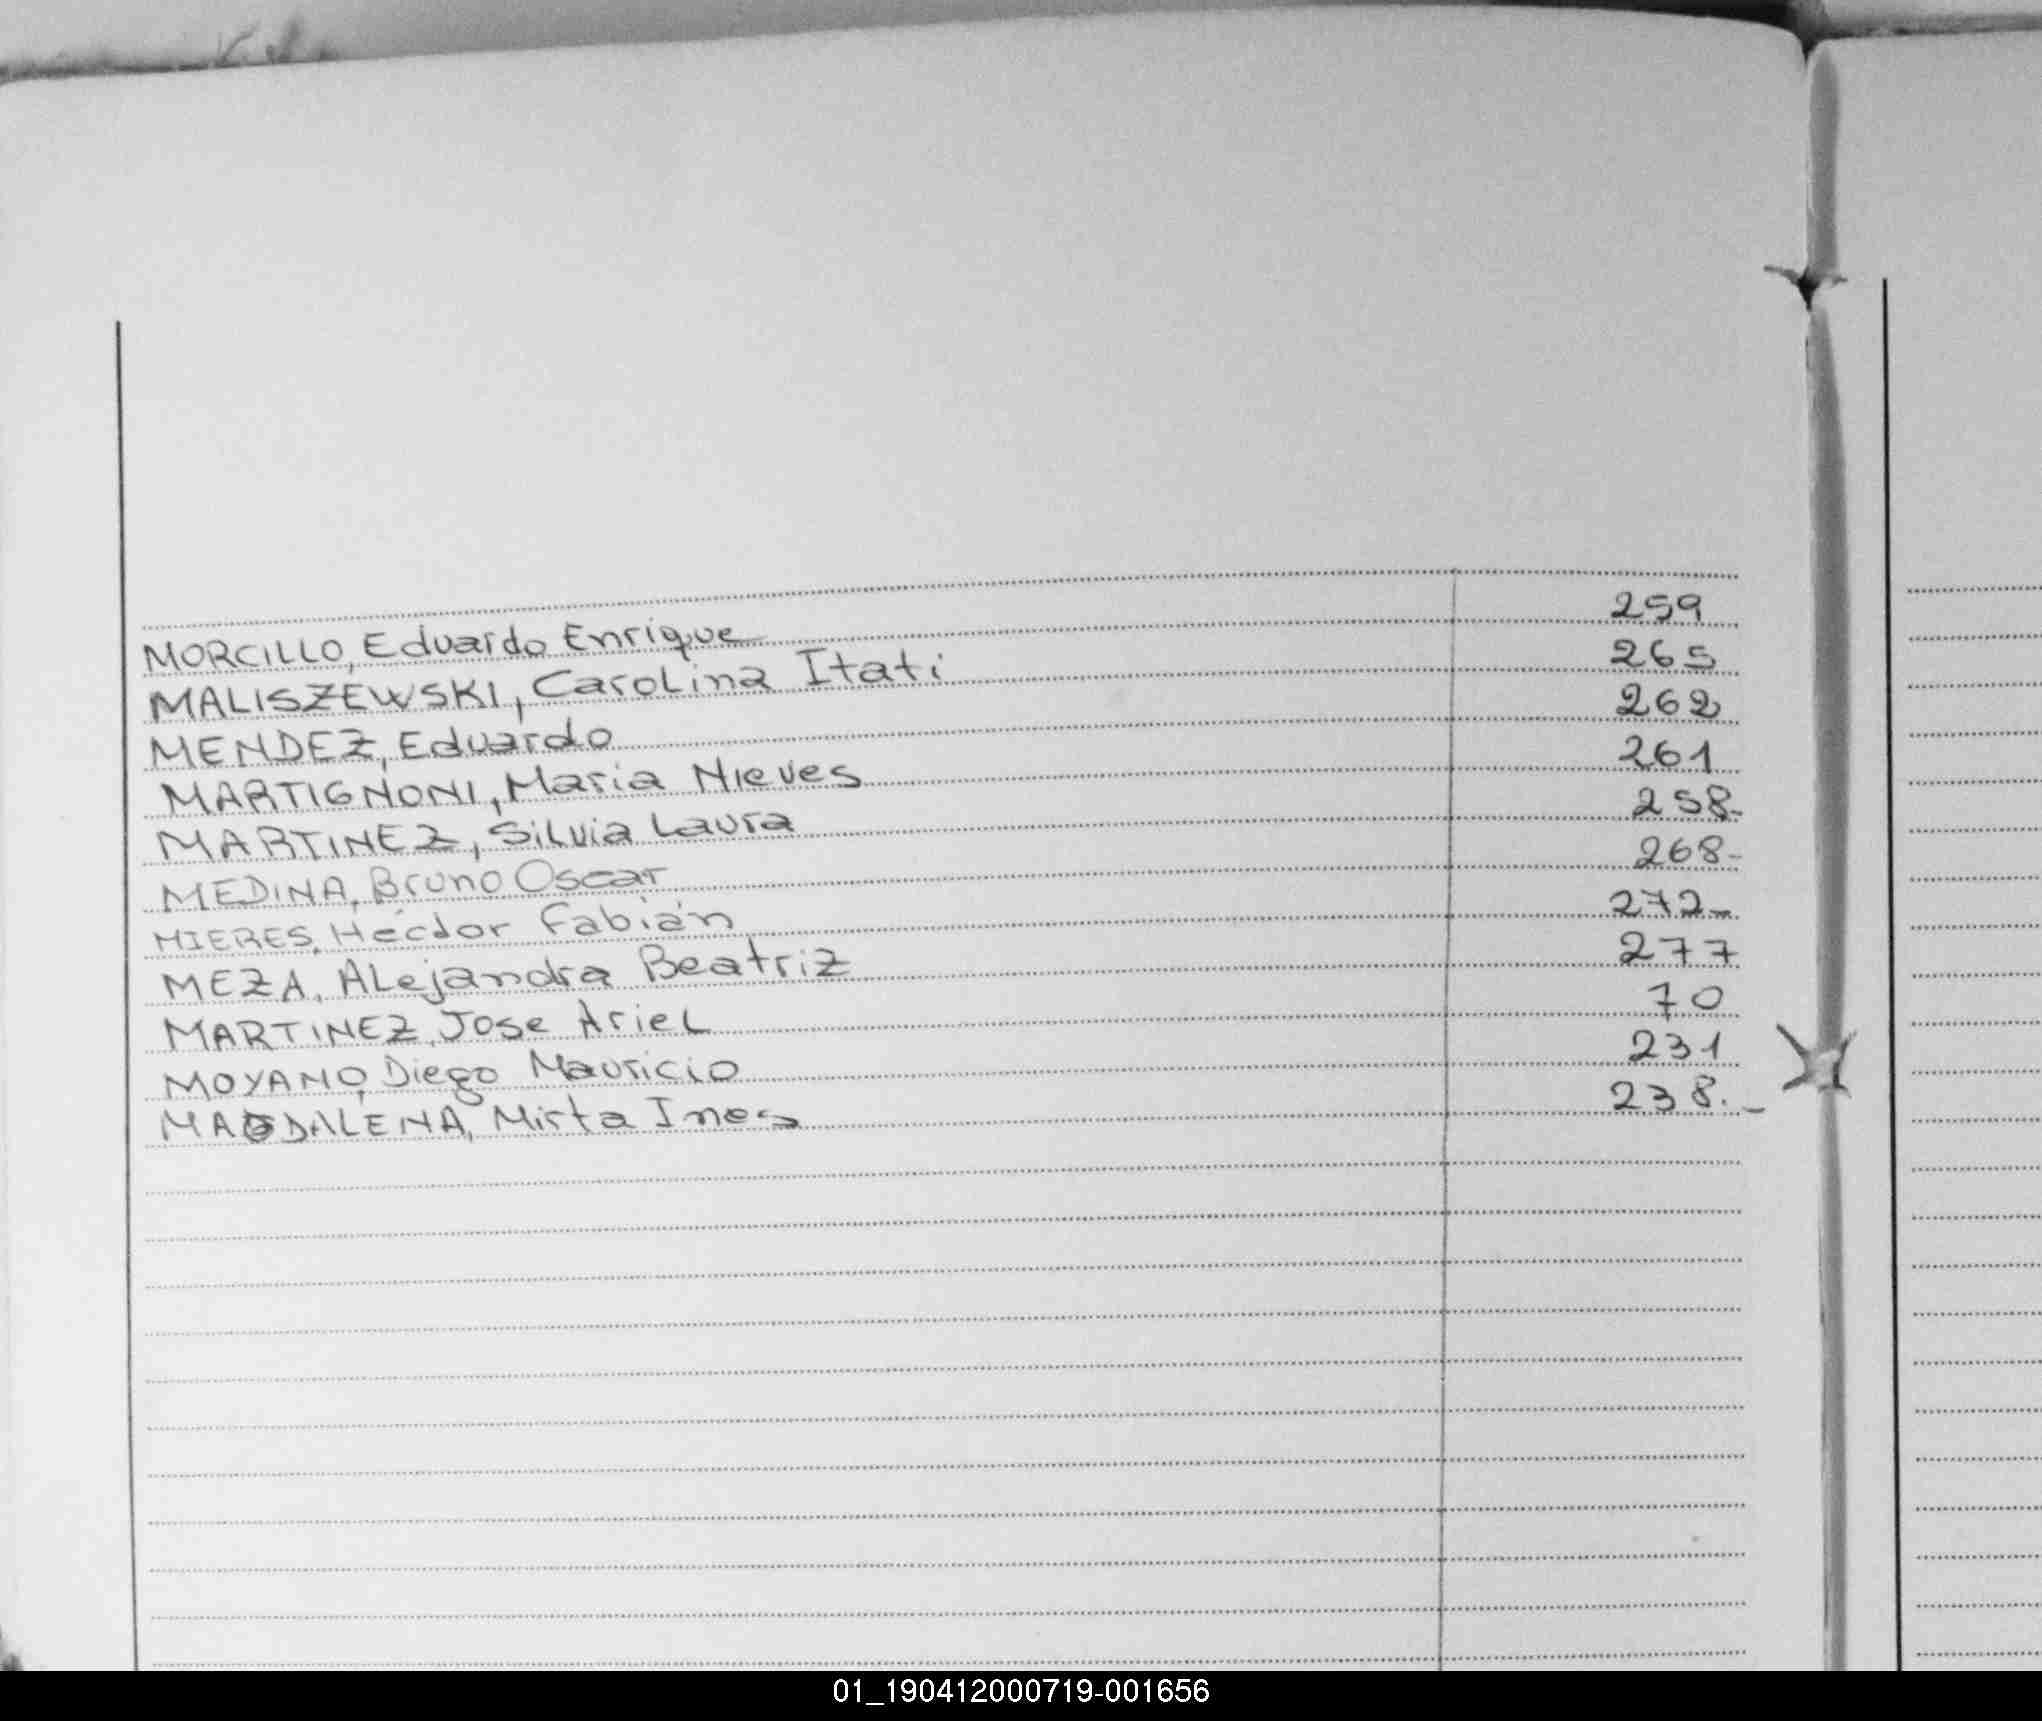 MORCILLO, Eduardo Enrique 259
MALISZEWSKI, Carolina Itati 265
MENDEZ, Eduardo 262
MARTIGNONI, Maria Nieves 261
MARTINEZ, Silvia Laura 258-
MEDINA, Bruno Oscar 268-
MIERES, Héctor Fabián 272-
MEZA, Alejandra Beatriz 277
MARTINEZ, Jose Ariel 70
MOYANO, Diego Mauricio 231
MAGDALENA, Mirta Ines 238.-
01_190412000719-001656